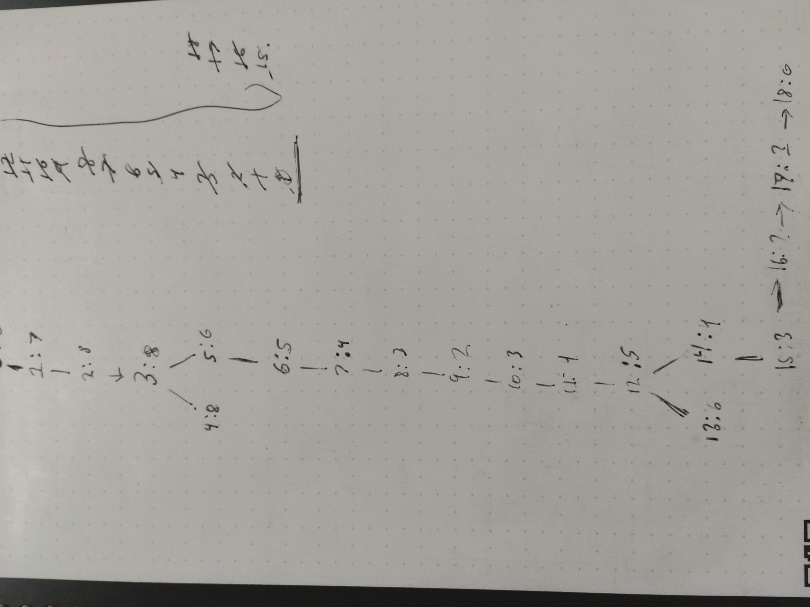 1:7
2:8
3:8
4:8 5:6
6:5
7:4
8:3
9:2
10:3
11:4
12:5
13:6 14:4
15:3 → 16:2 → 17:2 → 18:0
12
11
10
9
8
7
6
5
4
3
2
1
0
18
17
16
15